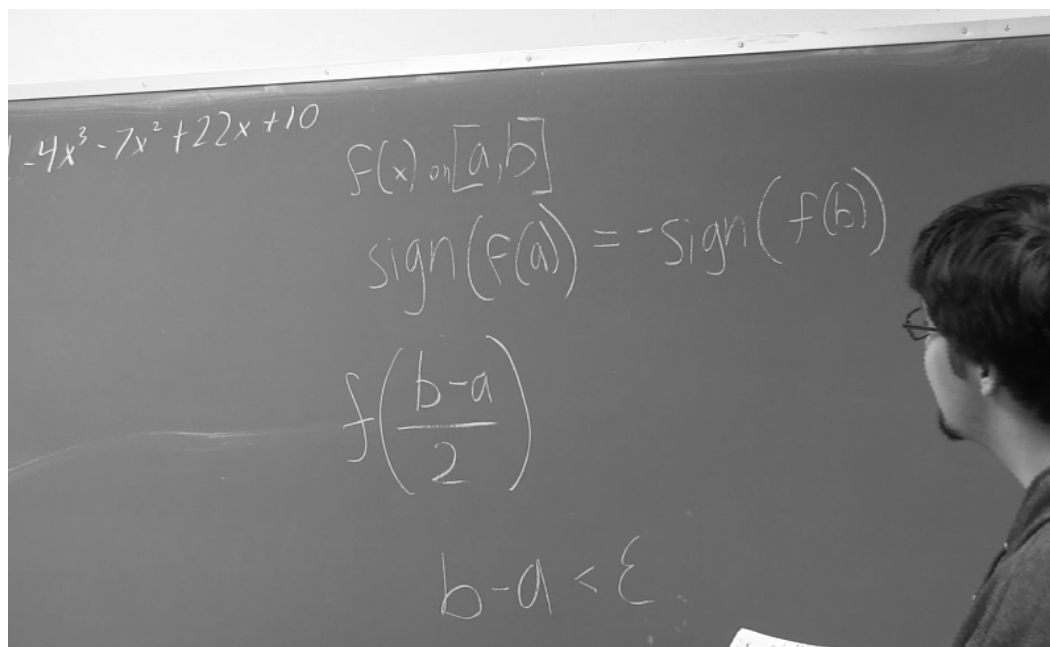 -4x³-7x²+22x+10
f(x) on [a,b]
sign(f(a)) = -sign(f(b))
f((b-a)/2)
b-a < ε